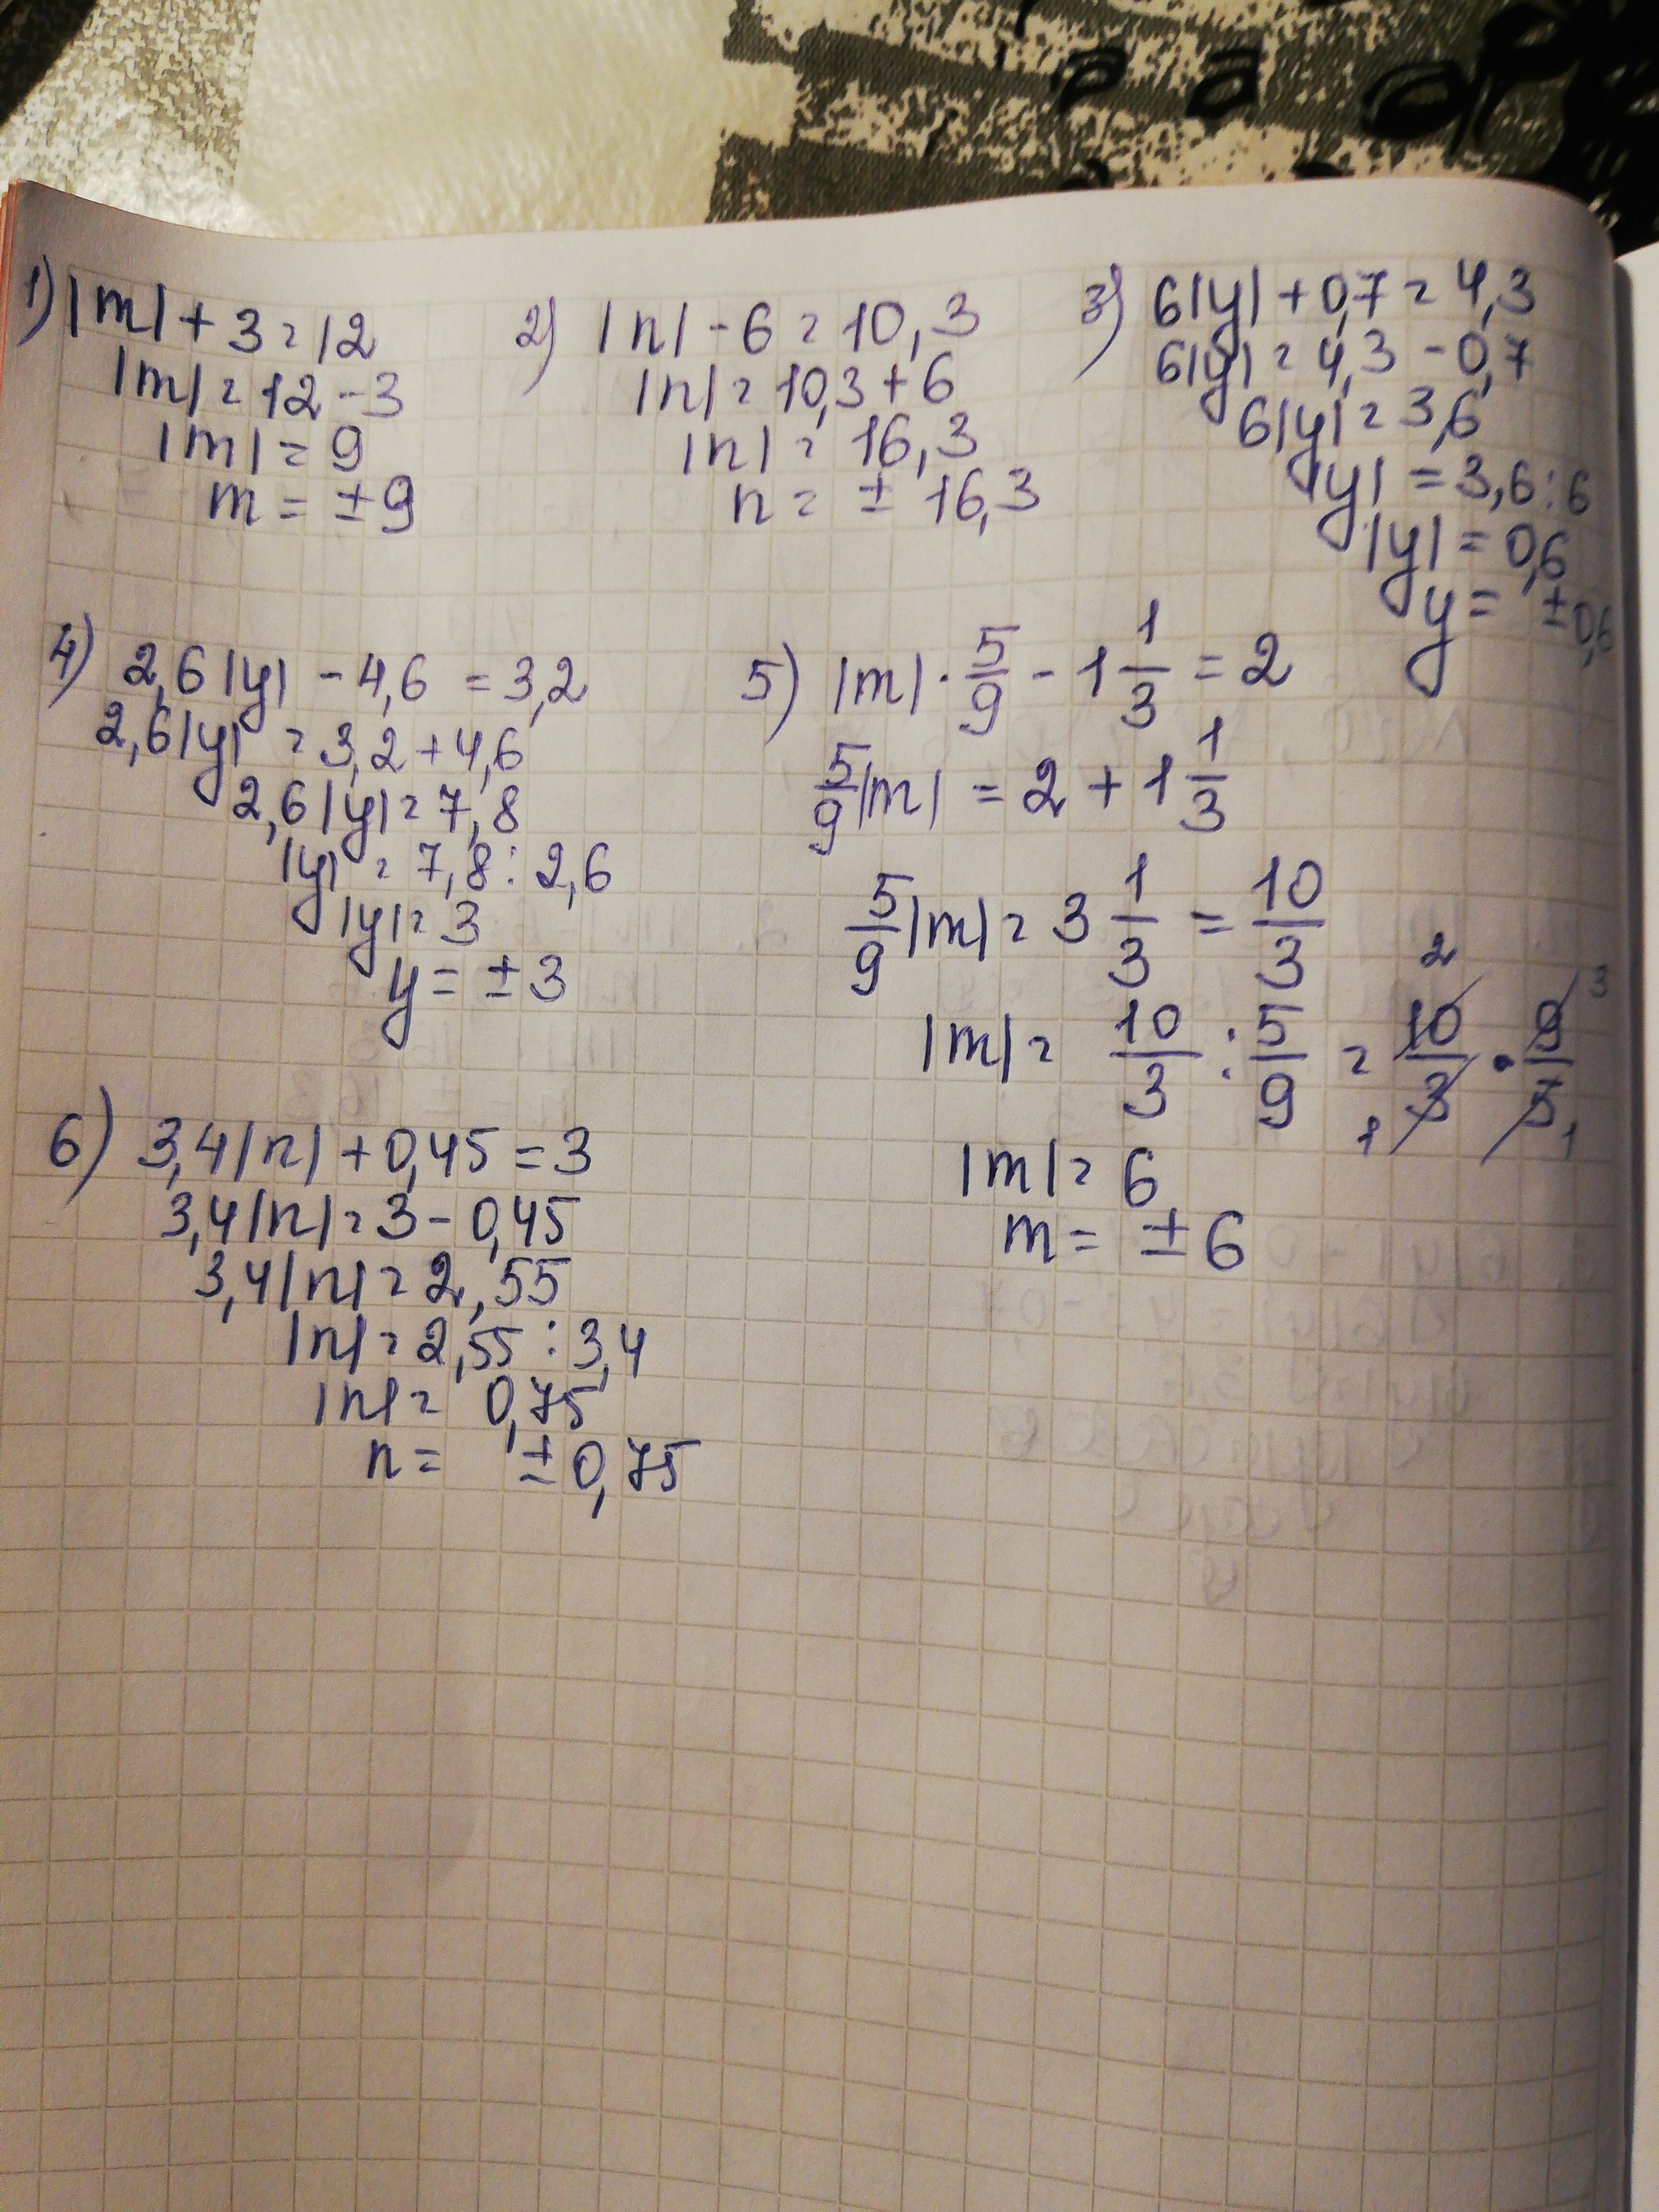 1) |m| + 3 = 12
|m| = 12 - 3
|m| = 9
m = ±9
2) |n| - 6 = 10,3
|n| = 10,3 + 6
|n| = 16,3
n = ± 16,3
3) 6|y| + 0,7 = 4,3
6|y| = 4,3 - 0,7
6|y| = 3,6
|y| = 3,6 : 6
|y| = 0,6
y = ±0,6
4) 2,6|y| - 4,6 = 3,2
2,6|y| = 3,2 + 4,6
2,6|y| = 7,8
|y| = 7,8 : 2,6
|y| = 3
y = ±3
5) |m| · 5/9 - 1 1/3 = 2
5/9|m| = 2 + 1 1/3
5/9|m| = 3 1/3 = 10/3
|m| = 10/3 : 5/9 = 10/3 · 9/5
2 3
1 1
|m| = 6
m = ±6
6) 3,4|n| + 0,45 = 3
3,4|n| = 3 - 0,45
3,4|n| = 2,55
|n| = 2,55 : 3,4
|n| = 0,75
n = ±0,75